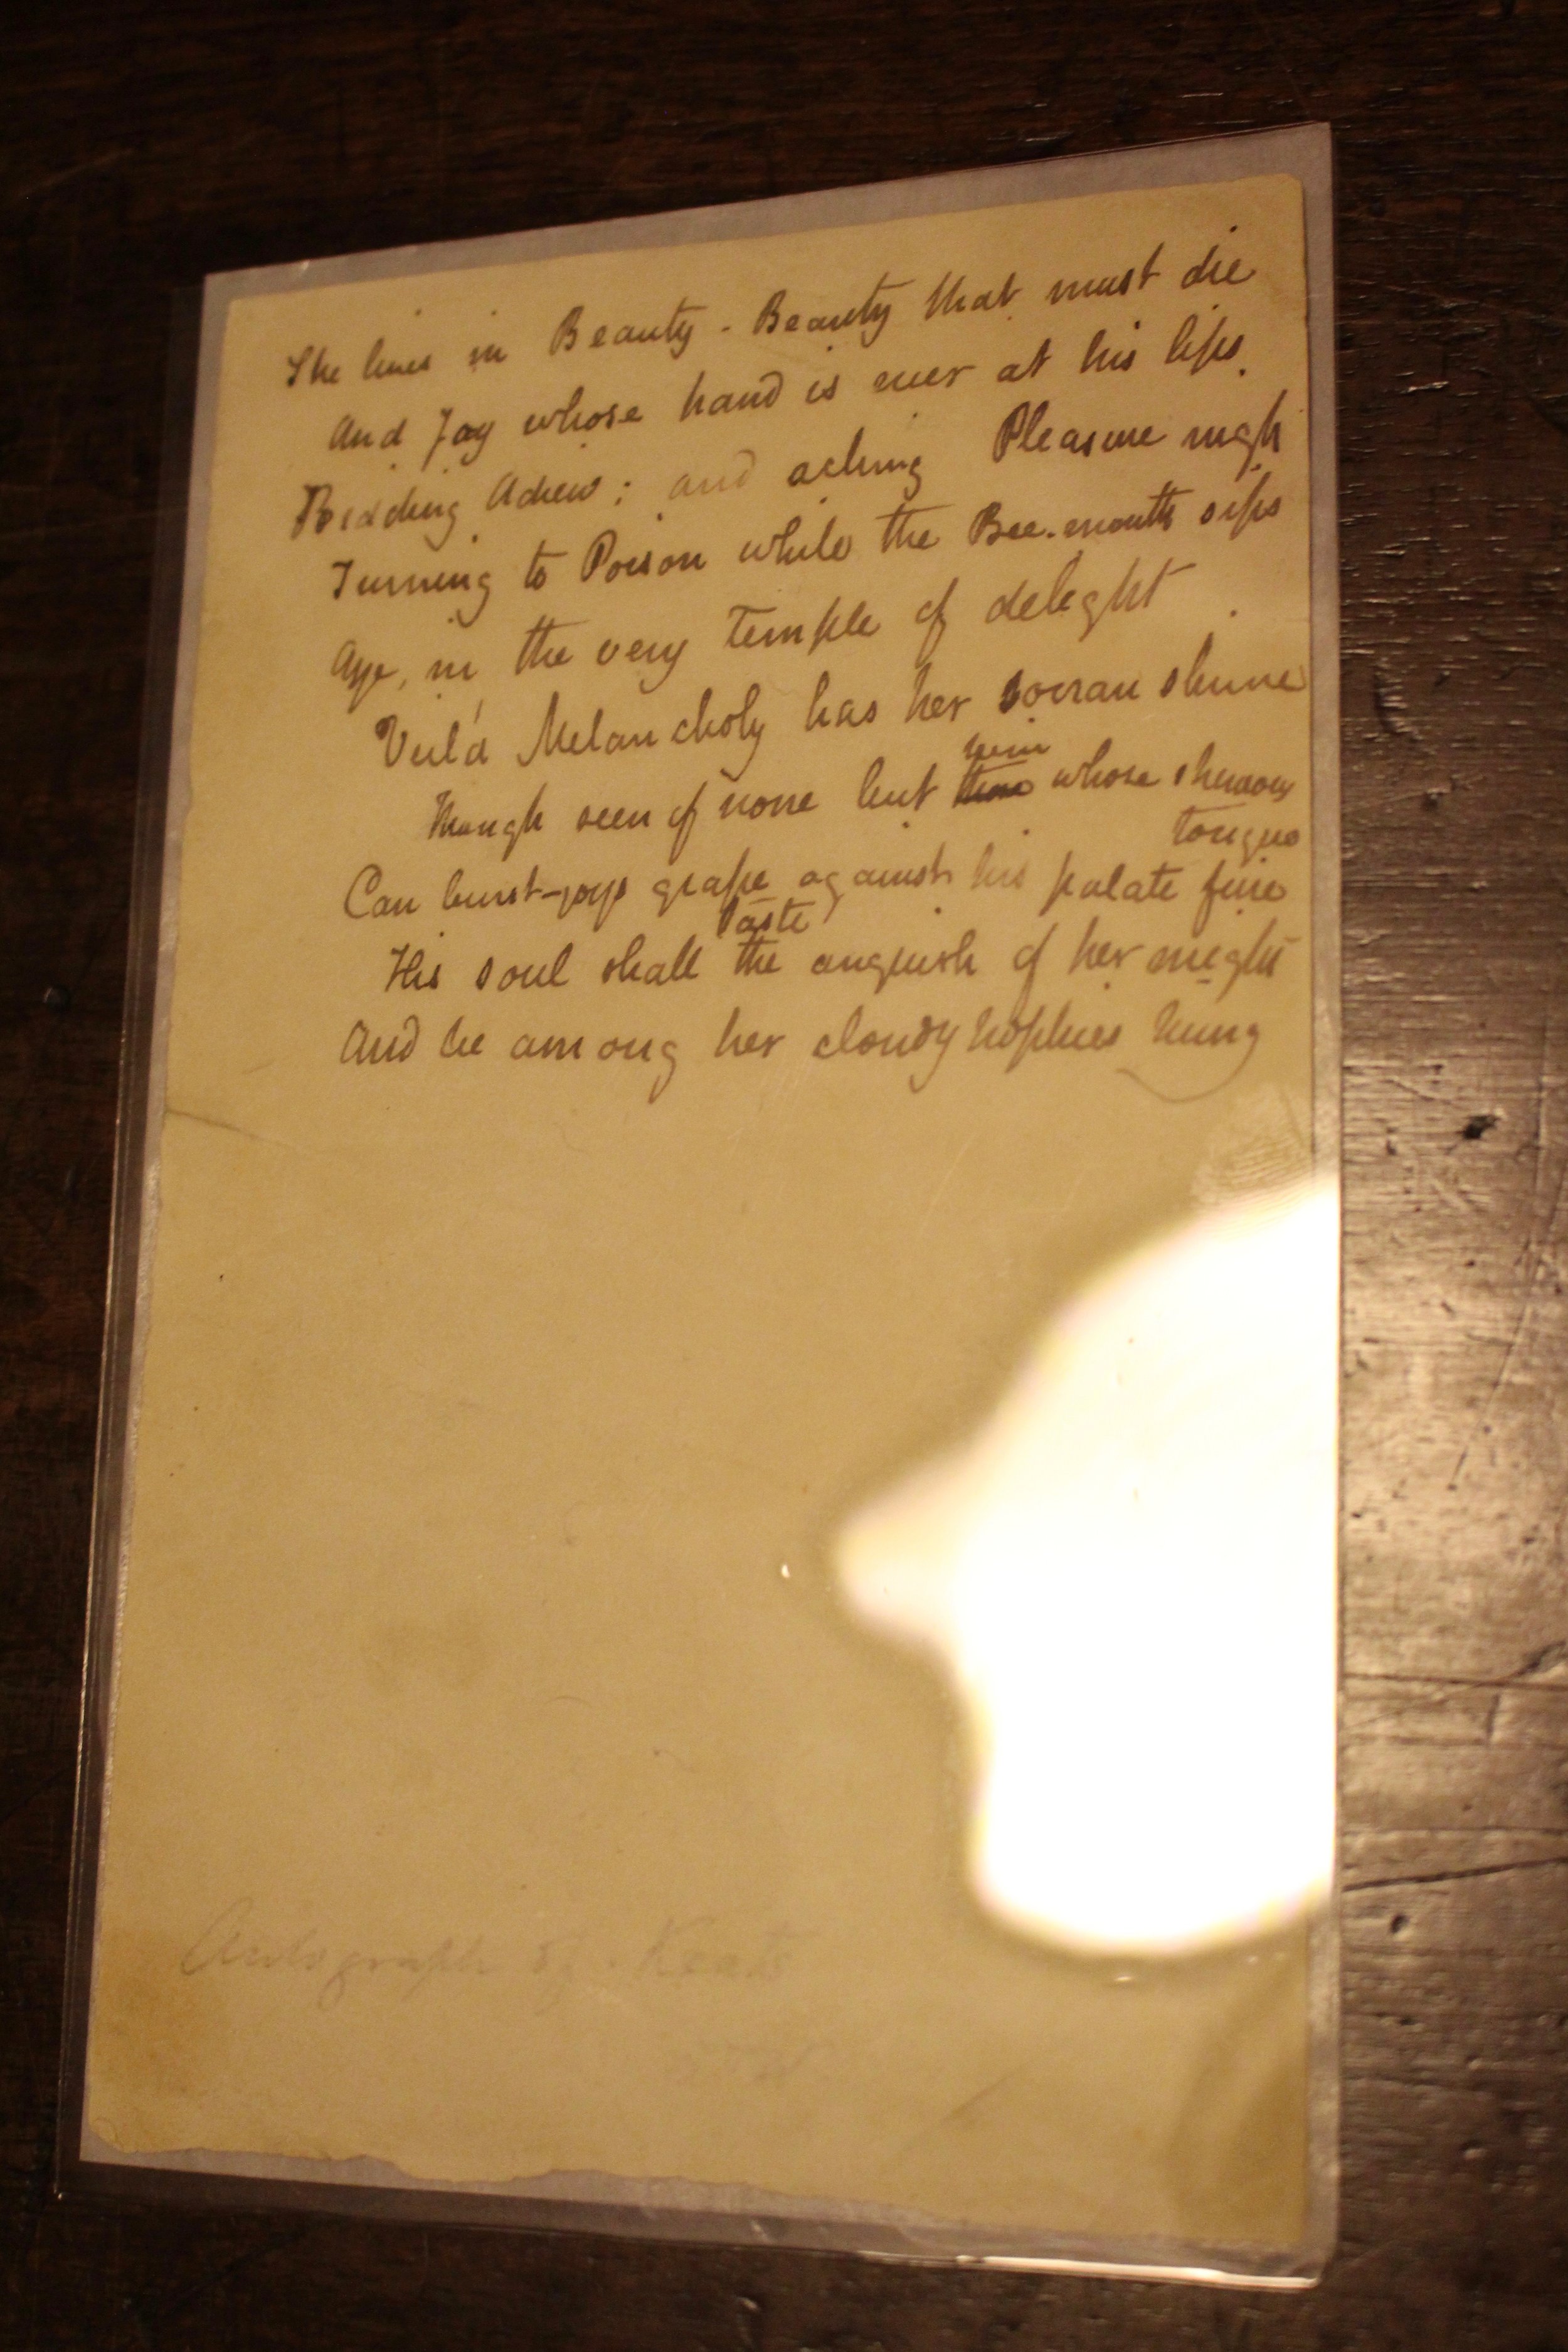 She lives in Beauty - Beauty that must die
And Joy whose hand is ever at his lips
Bidding Adieu: and aching Pleasure nigh
Turning to Poison while the Bee-mouth sips
Aye, in the very temple of delight
Veil'd Melancholy has her sovran shrine
him
Though seen of none but whose strenuous
tongue
Can burst joys grape against his palate fine
taste
His soul shall the anguish of her might
And be among her cloudy trophies hung
Autograph of Keats